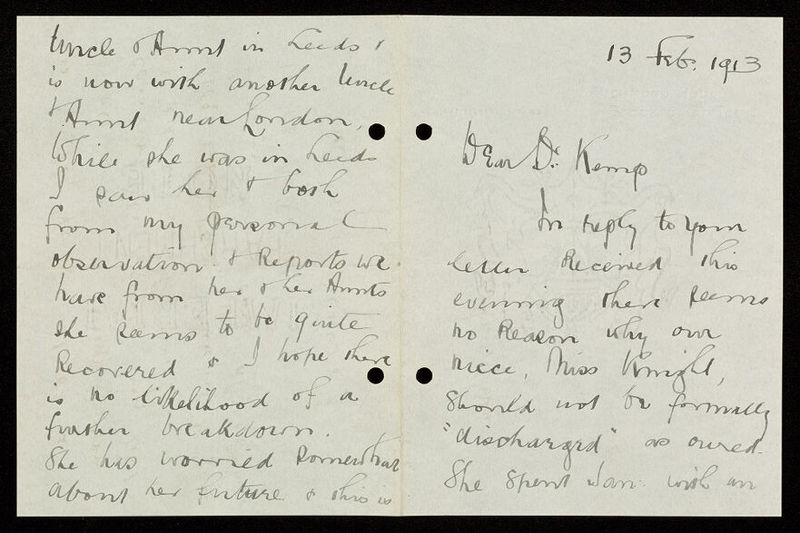 13 Feb. 1913
Dear Dr. Kemp
In reply to your
letter received this
evening there seems
no reason why our
niece, Miss Knight,
should not be formally
"discharged" as cured.
She spent Jan. with an
Uncle & Aunt in Leeds &
is now with another Uncle
& Aunt near London.
While she was in Leeds
I saw her & both
from my personal
observation & reports we
have from her & her Aunts
she seems to be quite
recovered & I hope there
is no likelihood of a
further breakdown.
She has worried somewhat
about her future & this is